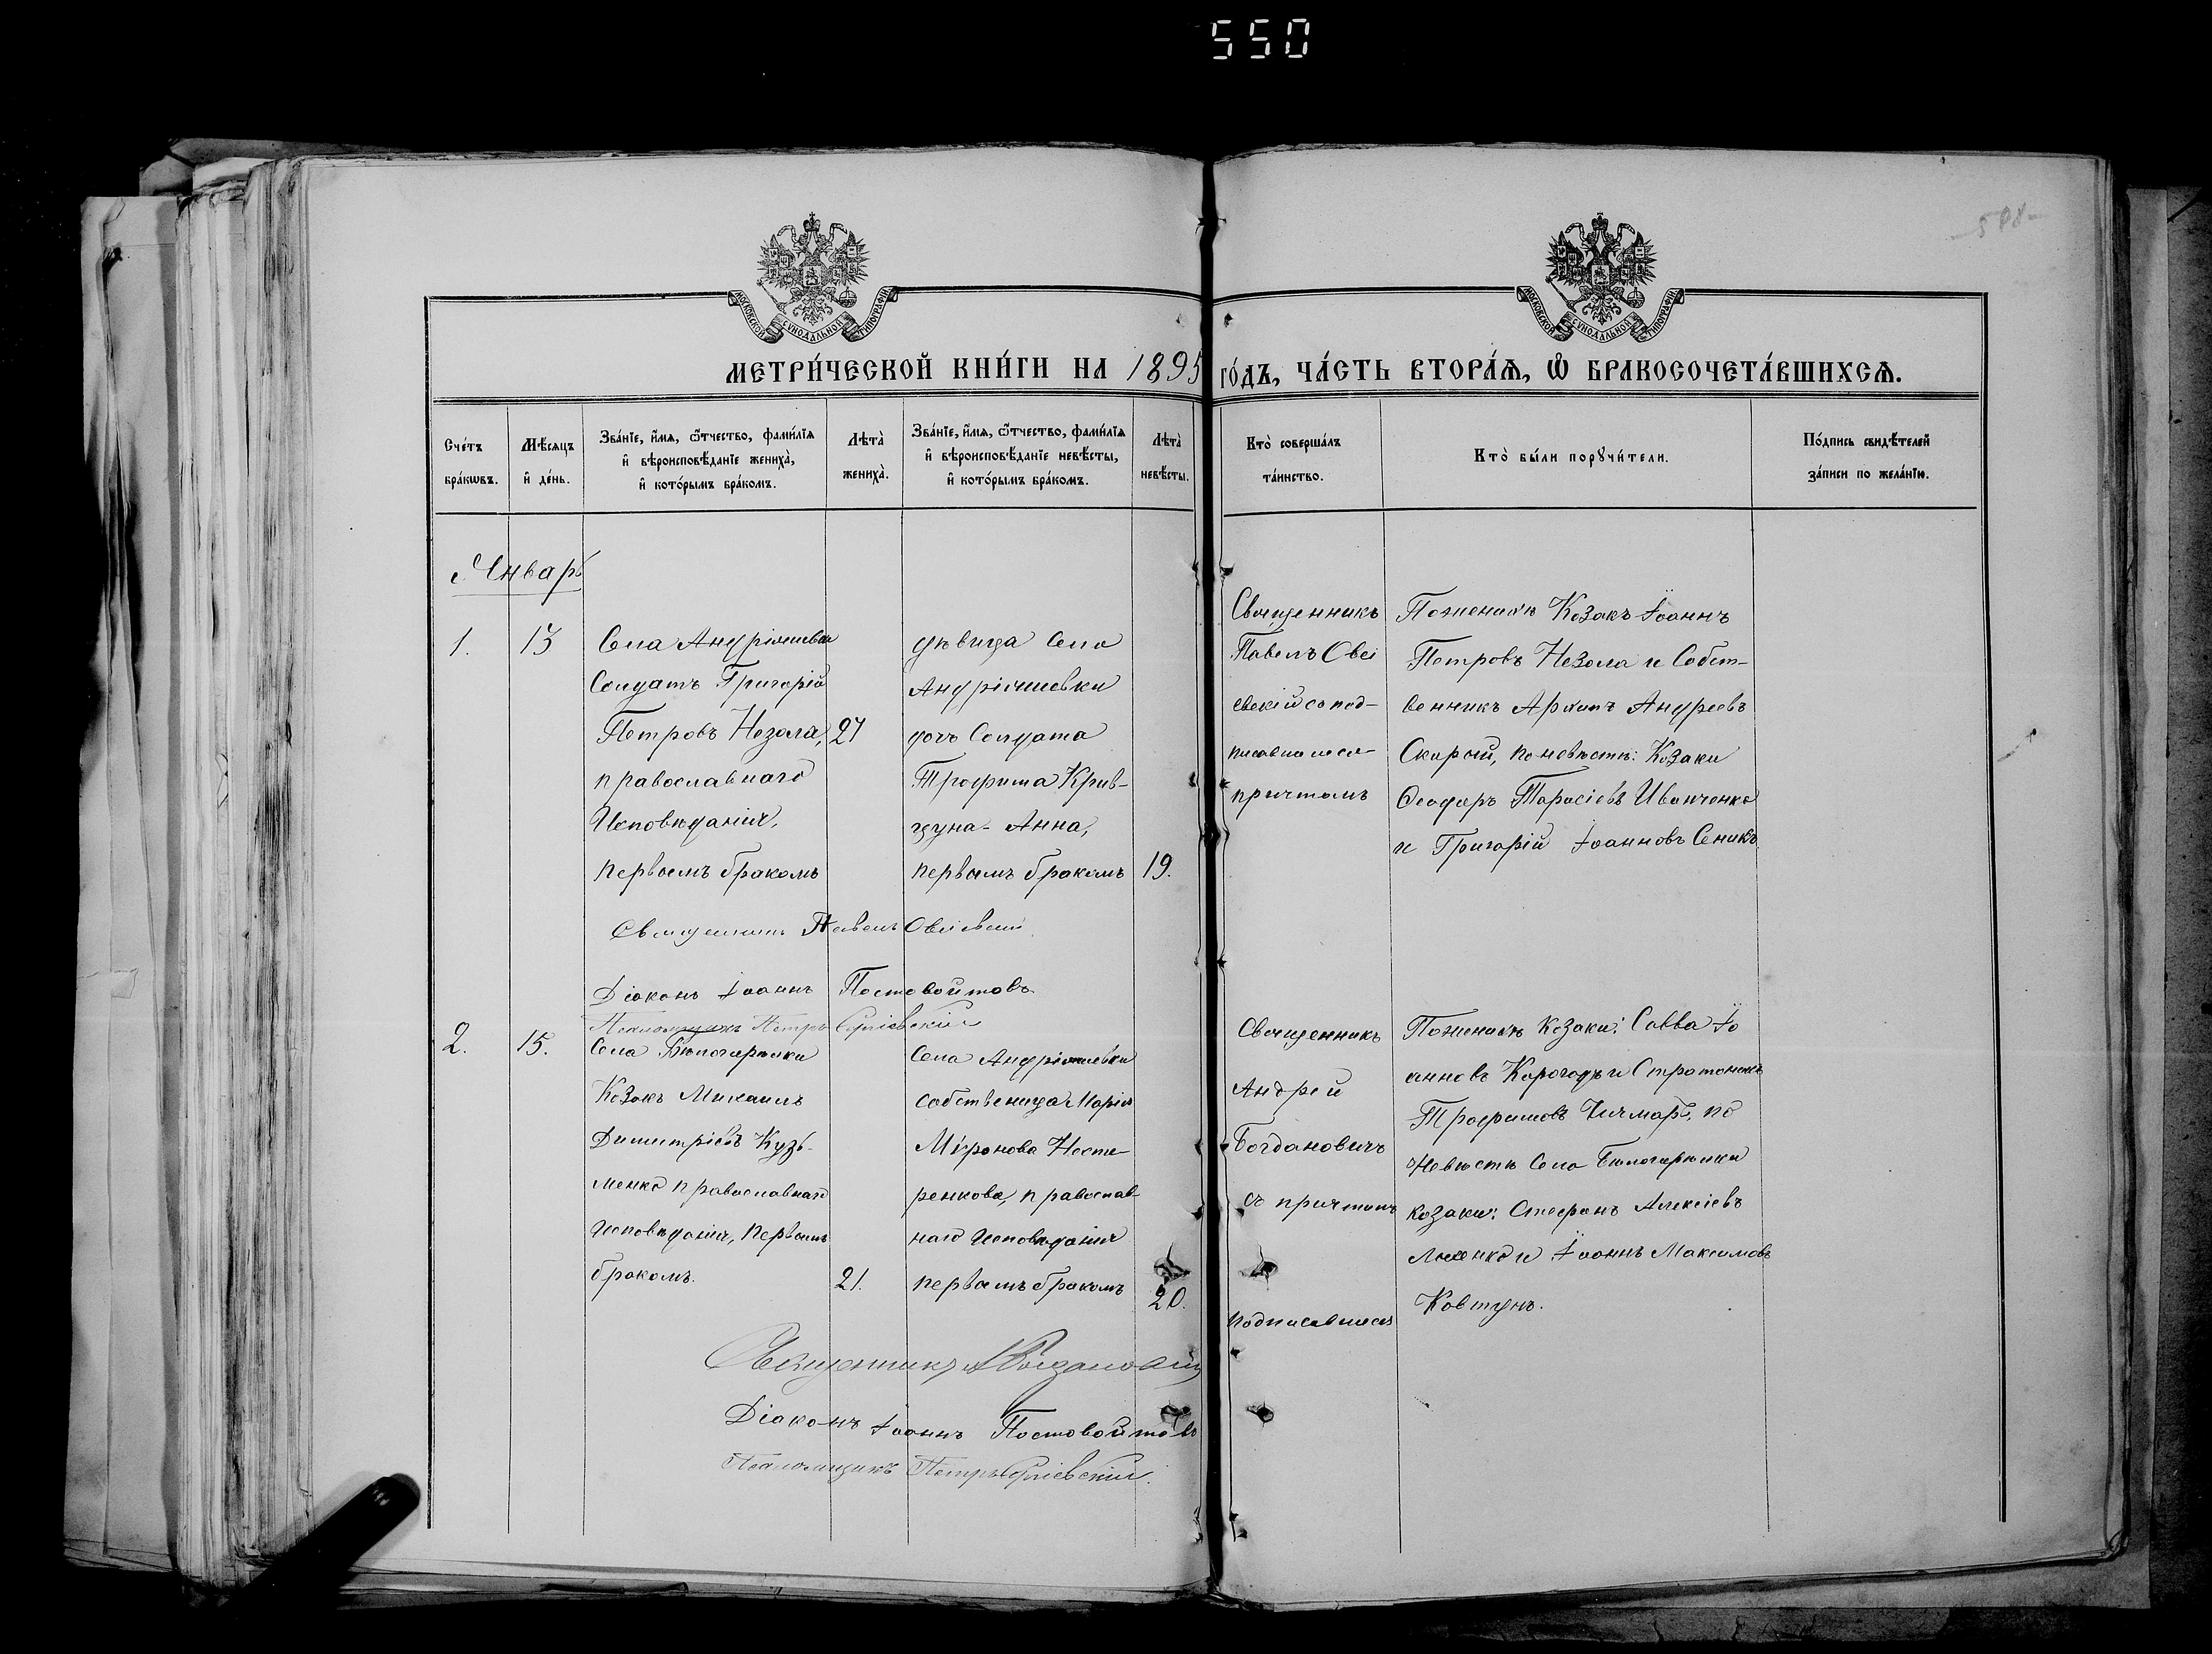 550
508
МОСКОВСКОЙ СѴНОДАЛЬНОЙ ТИПОГРАФІИ
МОСКОВСКОЙ СѴНОДАЛЬНОЙ ТИПОГРАФІИ
МЕТРИ́ЧЕСКОЙ КНИ́ГИ НА 1895 ГО́ДЪ, ЧА́СТЬ ВТОРА́Ѧ, Ѡ҆ БРАКОСОЧЕТА́ВШИХСѦ.
Сче́тъ
бра́кѡвъ.
Мѣ́сяцъ
и҆ де́нь.
Зва́нїе, и҆́мѧ, ѻ҆́тчество, фами́лїѧ
и҆ вѣроисповѣ́данїе жениха̀,
и҆ кото́рымъ бра́комъ.
Лѣта̀
жениха̀.
Зва́нїе, и҆́мѧ, ѻ҆́тчество, фами́лїѧ
и҆ вѣроисповѣ́данїе невѣ́сты,
и҆ кото́рымъ бра́комъ.
Лѣта̀
невѣ́сты.
Кто̀ соверша́лъ
та́инство.
Кто̀ бы́ли порꙋчи́тели.
По́дпись свидѣ́телей
за́писи по жела́нїю.
Январь
1.
13
Села Андріяшевки
Солдатъ Григорій
Петровъ Незола,
православнаго
Исповѣданія,
первымъ бракомъ
27
дѣвица Села
Андріяшевки
дочь Солдата
Трофима Крив-
цуна - Анна,
первымъ бракомъ
19.
Священникъ
Павелъ Овсі
евскій со под-
писавшимся
причтомъ
По женихѣ Козакъ Іоаннъ
Петровъ Незола и Собст-
венникъ Архипъ Андреевъ
Скорый, по невѣстѣ: Козаки
Ѳеодоръ Тарасіевъ Иванченко
и Григорій Іоанновъ Сеникъ
Священникъ Павелъ Овсіевскій
Діаконъ Іоаннъ Постовойтовъ
Псаломщикъ Петръ
2.
15.
Села Бѣлогорилки
Козакъ Михаилъ
Димитріевъ Кузь-
менко православнаго
исповѣданія, первымъ
бракомъ.
21.
Села Андріяшевки
собственица Марія
Мѵронова Несте
ренкова, православ
наго исповѣданія
первымъ бракомъ
20.
Священникъ
Андрей
Богдановичъ
съ причтомъ
подписавшимся
По женихѣ козаки: Савва Іо
анновъ Корогодъ и Стратоникъ
Трофимовъ Чичмарь, по
Невѣстѣ Села Бѣлогорилки
козаки: Стефанъ Алексіевъ
и Іоаннъ Максимовъ
Ковтунъ.
Священникъ А Богдановичъ
Діаконъ Іоаннъ Постовойтовъ
Псаломщикъ Петръ